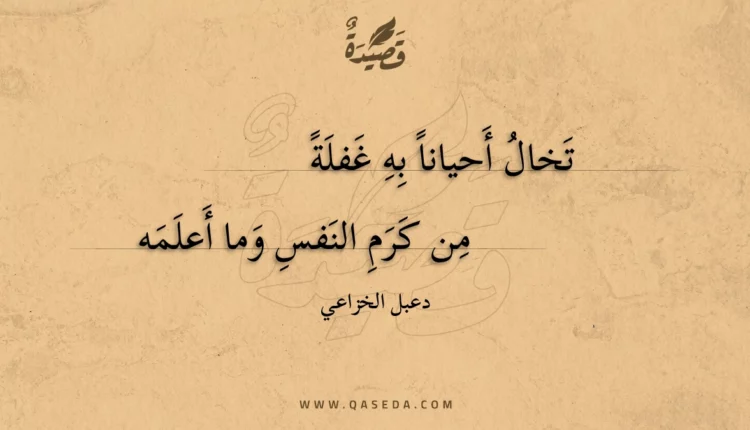 قَصِيدَةٌ
تَخالُ أَحياناً بِهِ غَفلَةً
مِن كَرَمِ النَفسِ وَما أَعلَمَه
دعبل الخزاعي
WWW.QASEDA.COM